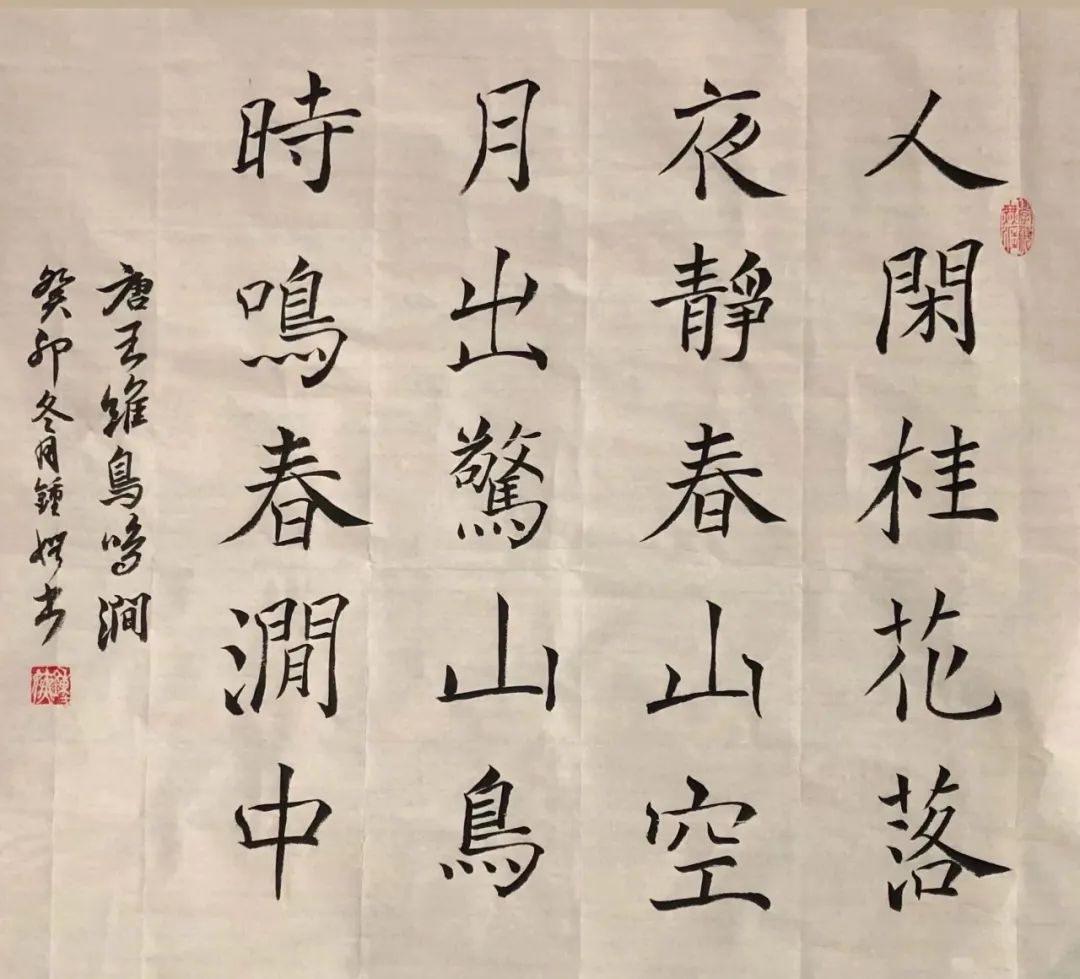 人閑桂花落
夜靜春山空
月出驚山鳥
時鳴春澗中
唐王維鳥鳴澗
癸卯冬月鍾書